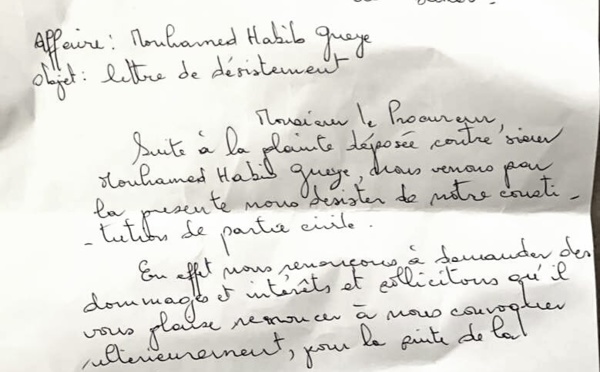 Affaire : Mouhamed Habib Gueye
Objet : lettre de désistement
Monsieur le Procureur,
Suite à la plainte déposée contre sieur
Mouhamed Habib Gueye, nous venons par
la presente nous desister de notre consti-
-tution de partie civile.
En effet nous renonçons à demander des
dommages et intérêts et sollicitons qu'il
vous plaise renoncer à nous convoquer
ulterieurement, pour la suite de la